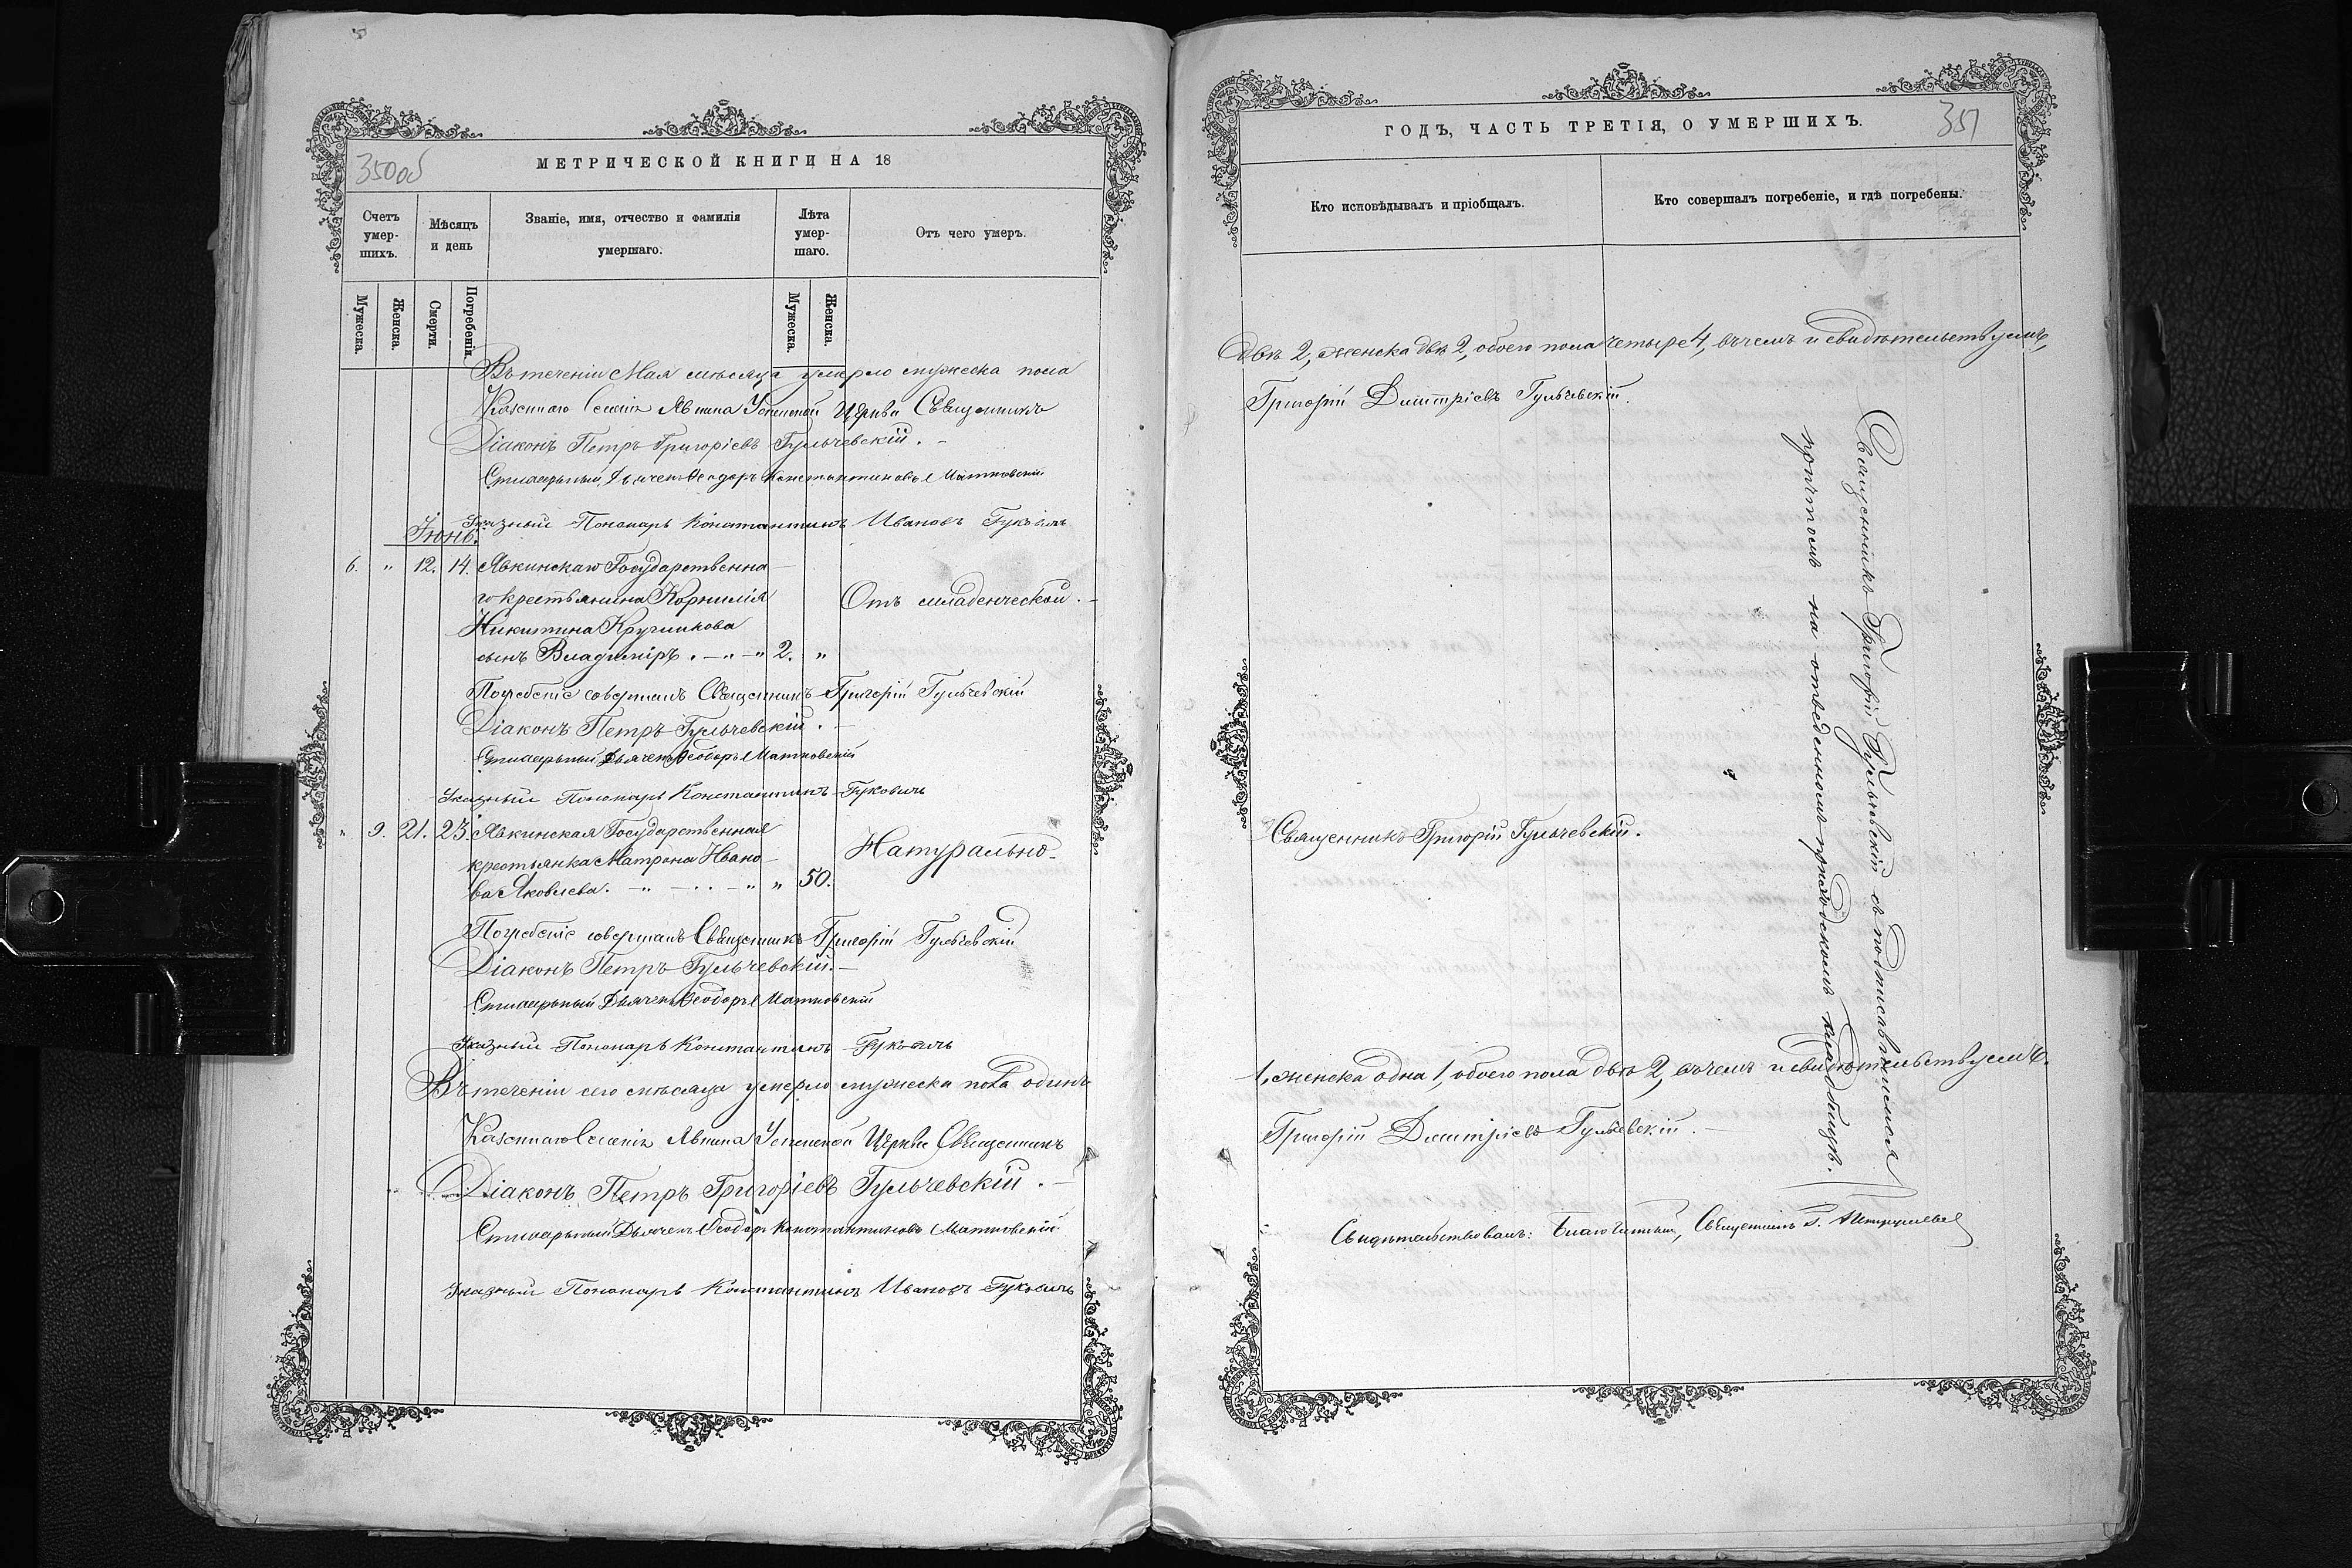 350об
МЕТРИЧЕСКОЙ КНИГИ НА 18
Счетъ умер- шихъ.
Мѣсяцъ и день
Званіе, имя, отчество и фамилія умершаго.
Лѣта умер- шаго.
Отъ чего умеръ.
Мужеска.
Женска.
Смерти.
Погребенія.
Мужеска.
Женска.
Въ теченіи Мая мѣсяца умерло мужеска пола
Казеннаго Селенія Явкина Успенской Церкви Священникъ
Діаконъ Петръ Григоріевъ Гульчевскій.
Стихарный Дьячекъ Ѳеодоръ Константиновъ Матковскій
Указный Пономарь Константинъ Ивановъ Гуковичъ
Іюнь.
6. " 12. 14. Явкинскаго Государственна-
го крестьянина Корнилія Отъ младенческой.
Никитина Кручинкова
сынъ Владиміръ. " 2. "
Погребеніе совершалъ Священникъ Григорій Гульчевскій
Діаконъ Петръ Гульчевскій.
Стихарный Дьячекъ Ѳеодоръ Матковскій
Указный Пономарь Константинъ Гуковичъ
" 9. 21. 23. Явкинская Государственная
крестьянка Матрона Ивано- Натурально
ва Яковлева. " " 50.
Погребеніе совершалъ Священникъ Григорій Гульчевскій
Діаконъ Петръ Гульчевскій.
Стихарный Дьячекъ Ѳеодоръ Матковскій
Указный Пономарь Константинъ Гуковичъ
Въ теченіи сего мѣсяца умерло мужеска пола одинъ
Казеннаго Селенія Явкина Успенской Церкви Священникъ
Діаконъ Петръ Григоріевъ Гульчевскій.
Стихарный Дьячекъ Ѳеодоръ Константиновъ Матковскій
Указный Пономарь Константинъ Ивановъ Гуковичъ
351
ГОДЪ, ЧАСТЬ ТРЕТІЯ, О УМЕРШИХЪ.
Кто исповѣдывалъ и пріобщалъ.
Кто совершалъ погребеніе, и гдѣ погребены.
двѣ 2, женска двѣ 2, обоего пола четыре 4, въ чемъ и свидѣтельствуемъ,
Григорій Димитріевъ Гульчевскій.
Священникъ Григорій Гульчевскій съ подписавшимся
причтомъ на отведенномъ приходскомъ кладбищѣ.
Священникъ Григорій Гульчевскій.
1, женска одна 1, обоего пола двѣ 2, въ чемъ и свидѣтельствуемъ.
Григорій Димитріевъ Гульчевскій.
Свидѣтельствовалъ: Благочинный, Священникъ